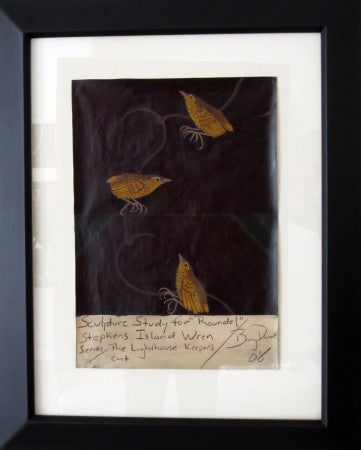 Sculpture Study for "Roundel"
Stephens Island Wren
Series, The Lighthouse Keepers
cat
06